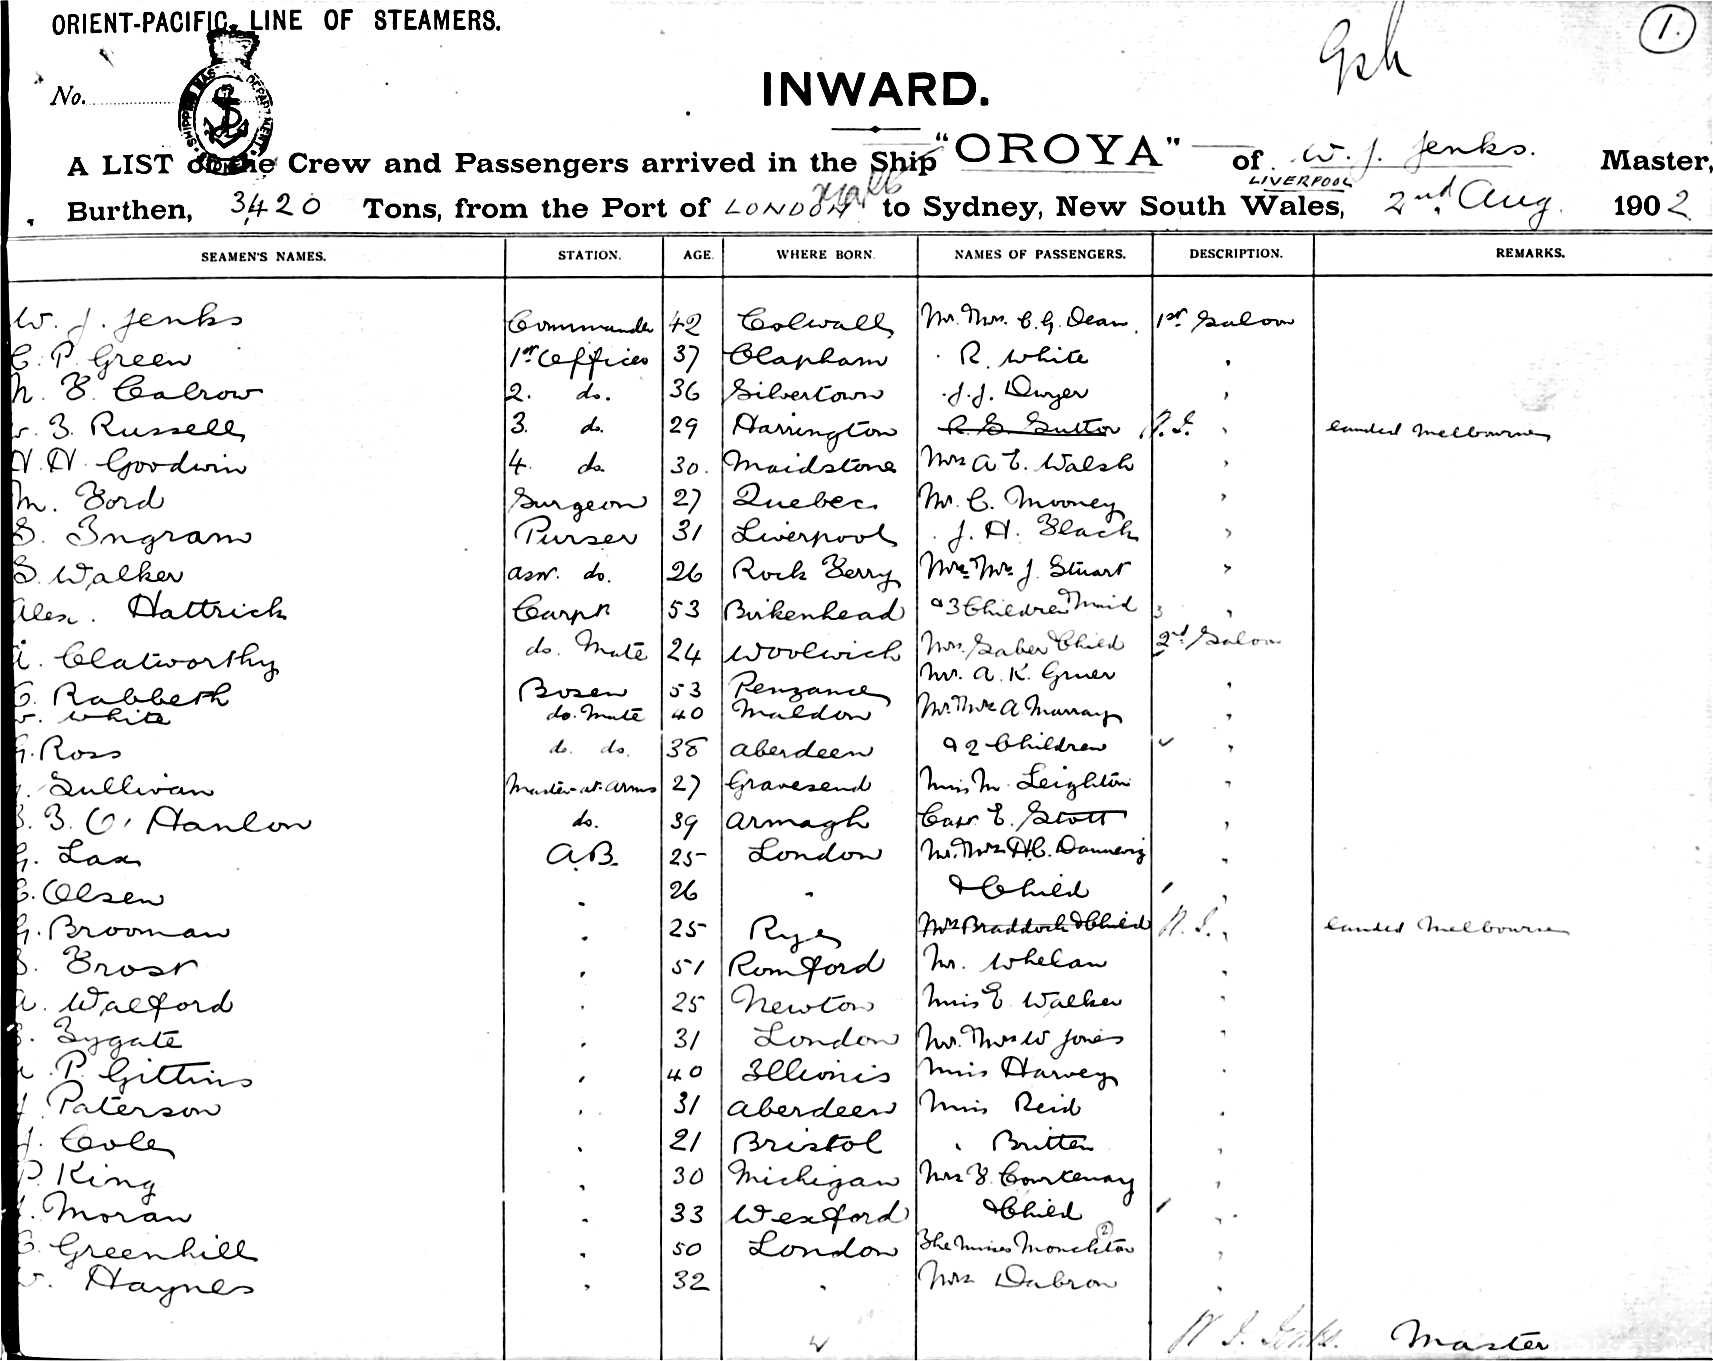 ORIENT-PACIFIC LINE OF STEAMERS.
1.
No.
INWARD.
A LIST of the Crew and Passengers arrived in the Ship "OROYA" of W. J. Jenks. Master,
LIVERPOOL
Burthen, 3,420 Tons, from the Port of LONDON to Sydney, New South Wales, 2nd Aug. 1902
SEAMEN'S NAMES. STATION. AGE. WHERE BORN. NAMES OF PASSENGERS. DESCRIPTION. REMARKS.
W. J. Jenks Commander 42 Colwall Mr. Mrs. C. G. Dean. 1st Saloon
C. P. Green 1st Officer 37 Clapham R. White
F. Calrow 2. do. 36 Silvertown J. J. Dwyer
F. Russell 3. do. 29 Harrington Sutton landed Melbourne
H. H. Goodwin 4. do. 30. Maidstone Mrs A. E. Walsh
M. Ford Surgeon 27 Quebec Mr. C. Mooney
S. Ingram Purser 31 Liverpool J. H. Flack
S. Walker asst. do. 26 Rock Ferry Mr. Mrs J. Stuart
Alex. Hattrick Carpr 53 Birkenhead & 3 Children Maid
Clatworthy do. Mate 24 Woolwich Mrs. Saber Child 2nd Saloon
Mr. A. K. Gruer
C. Rabbeth Bosen 53 Penzance
White do. Mate 40 Maldon Mr. Mrs A Murray
G. Ross do. do. 38 Aberdeen & 2 Children
Sullivan Master-at-Arms 27 Gravesend Miss M. Leighton
F. O'Hanlon do. 39 Armagh Capt. E. Stott
G. Lax A.B. 25 London Mr. Mrs H. C. Dannevig
C. Olsen 26 " & Child
G. Brooman 25 Rye Mrs Braddock & Child landed Melbourne
S. Frost 51 Romford Mr. Whelan
A. Walford 25 Newton Miss E. Walker
Fygate 31 London Mr. Mrs W Jones
P. Gittins 40 Illionis Miss Harvey
J. Paterson 31 Aberdeen Miss Reid
J. Cole 21 Bristol " Britten
P. King 30 Michigan Mrs F. Courtenay
Moran 33 Wexford & Child
C. Greenhill 50 London The Misses Monckton (2)
Haynes 32 " Mrs Dabron
W. J. Jenks. Master